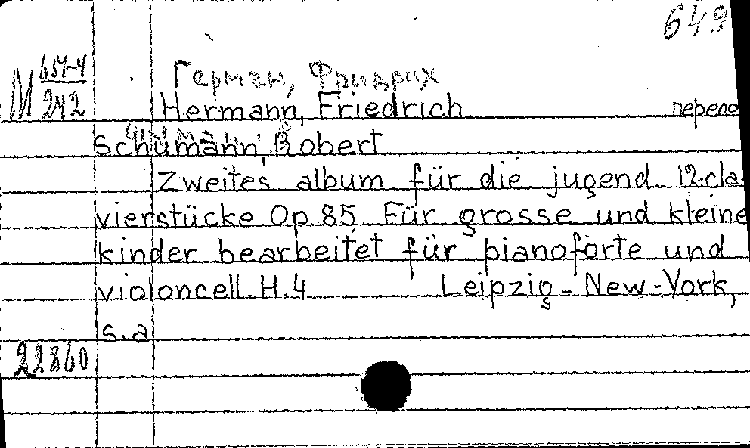 649
М 654-4
242
Герман, Фридрих
Hermann, Friedrich перело
Schumann, Robert
Zweites album für die jugend. 12.cla
vierstücke Op.85. Für grosse und kleine
kinder bearbeitet für pianoforte und
violoncell. H.4 Leipzig - New-York,
s.a
22860